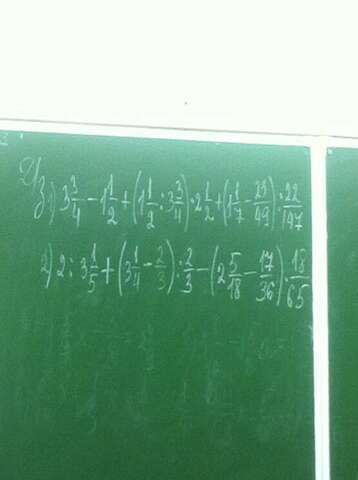 Д/З 1) 3 3/4 - 1 1/2 + (1 1/2 : 3 3/4) · 2 1/2 + (1 1/7 - 23/49) : 22/147
2) 2 : 3 1/5 + (3 1/4 - 2/3) : 2/3 - (2 5/18 - 17/36) · 18/65